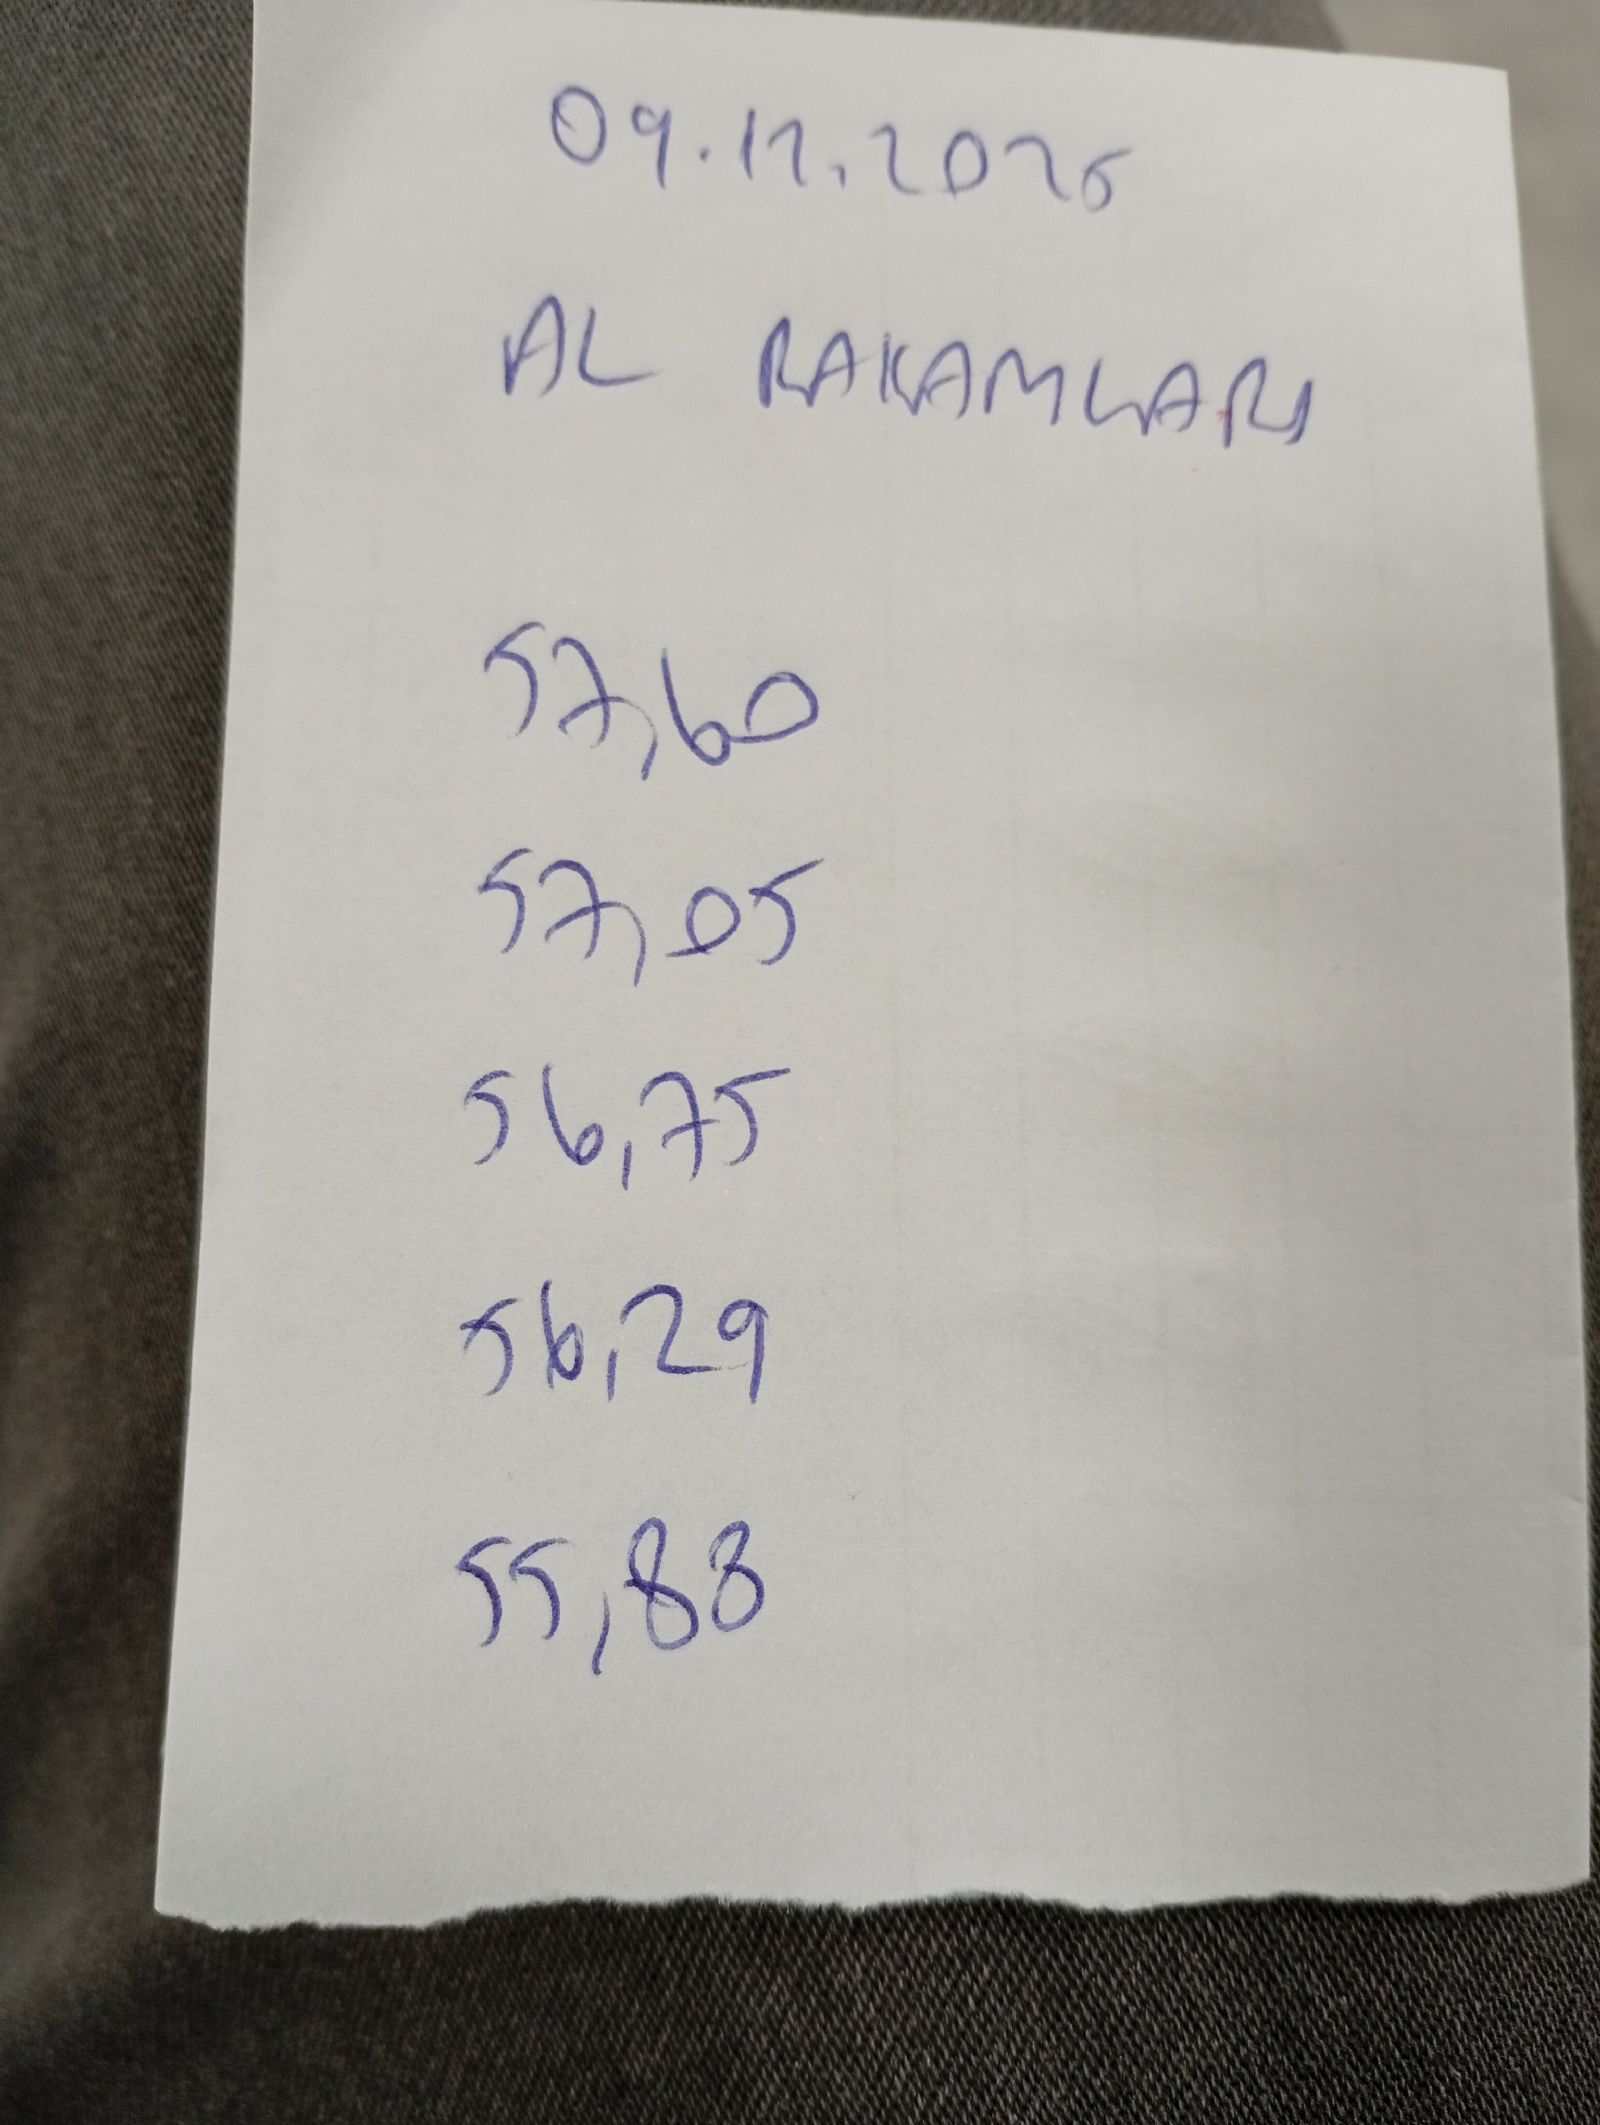 09.12.2025
AL RAKAMLARI
57,60
57,05
56,75
56,29
55,88